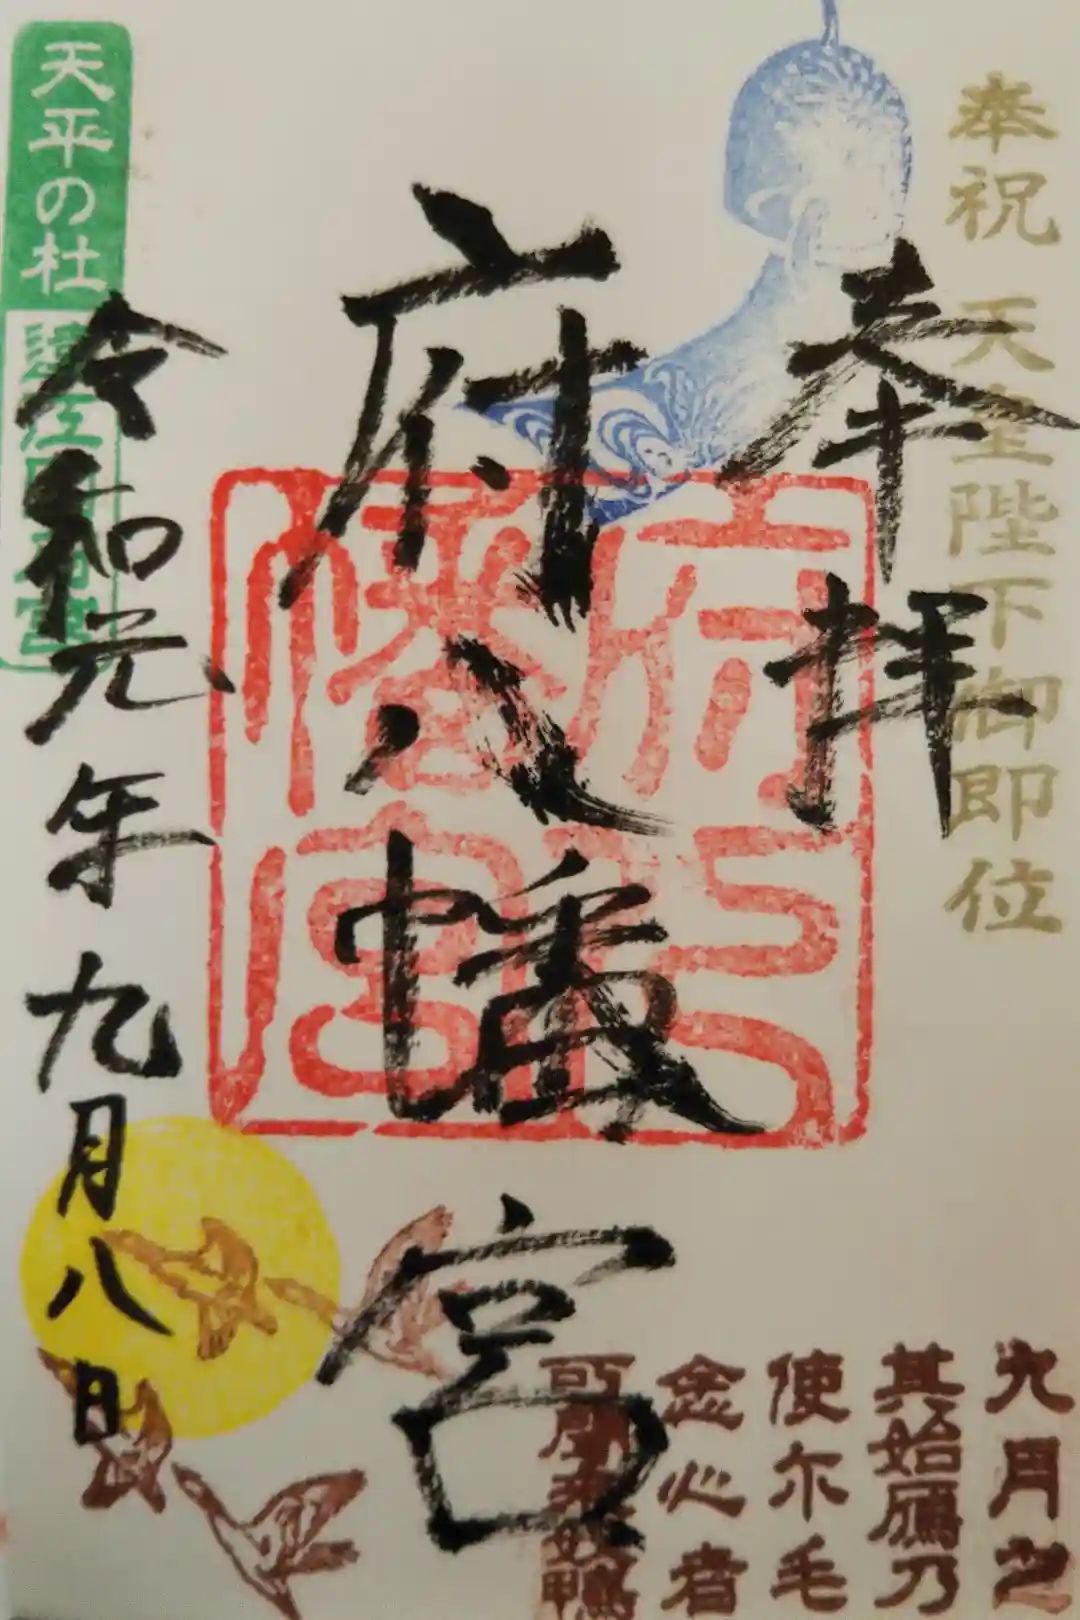 奉祝 天皇陛下御即位
奉拝
府八幡宮
府八幡宮
九月之
其始鴈乃
使尓毛
念心者
可聞来奴鴨
令和元年九月八日
天平の杜